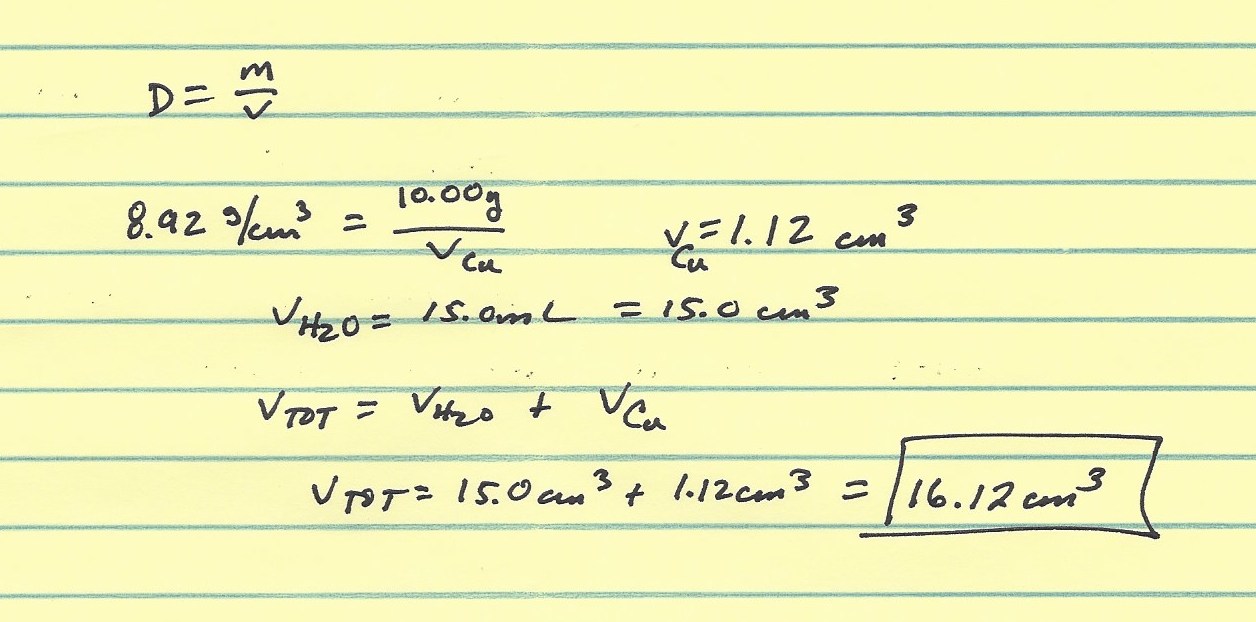 D = m/V
8.92 g/cm³ = 10.00g/V Cu V Cu = 1.12 cm³
V H2O = 15.0mL = 15.0 cm³
V TOT = V H2O + V Cu
V TOT = 15.0 cm³ + 1.12 cm³ = 16.12 cm³